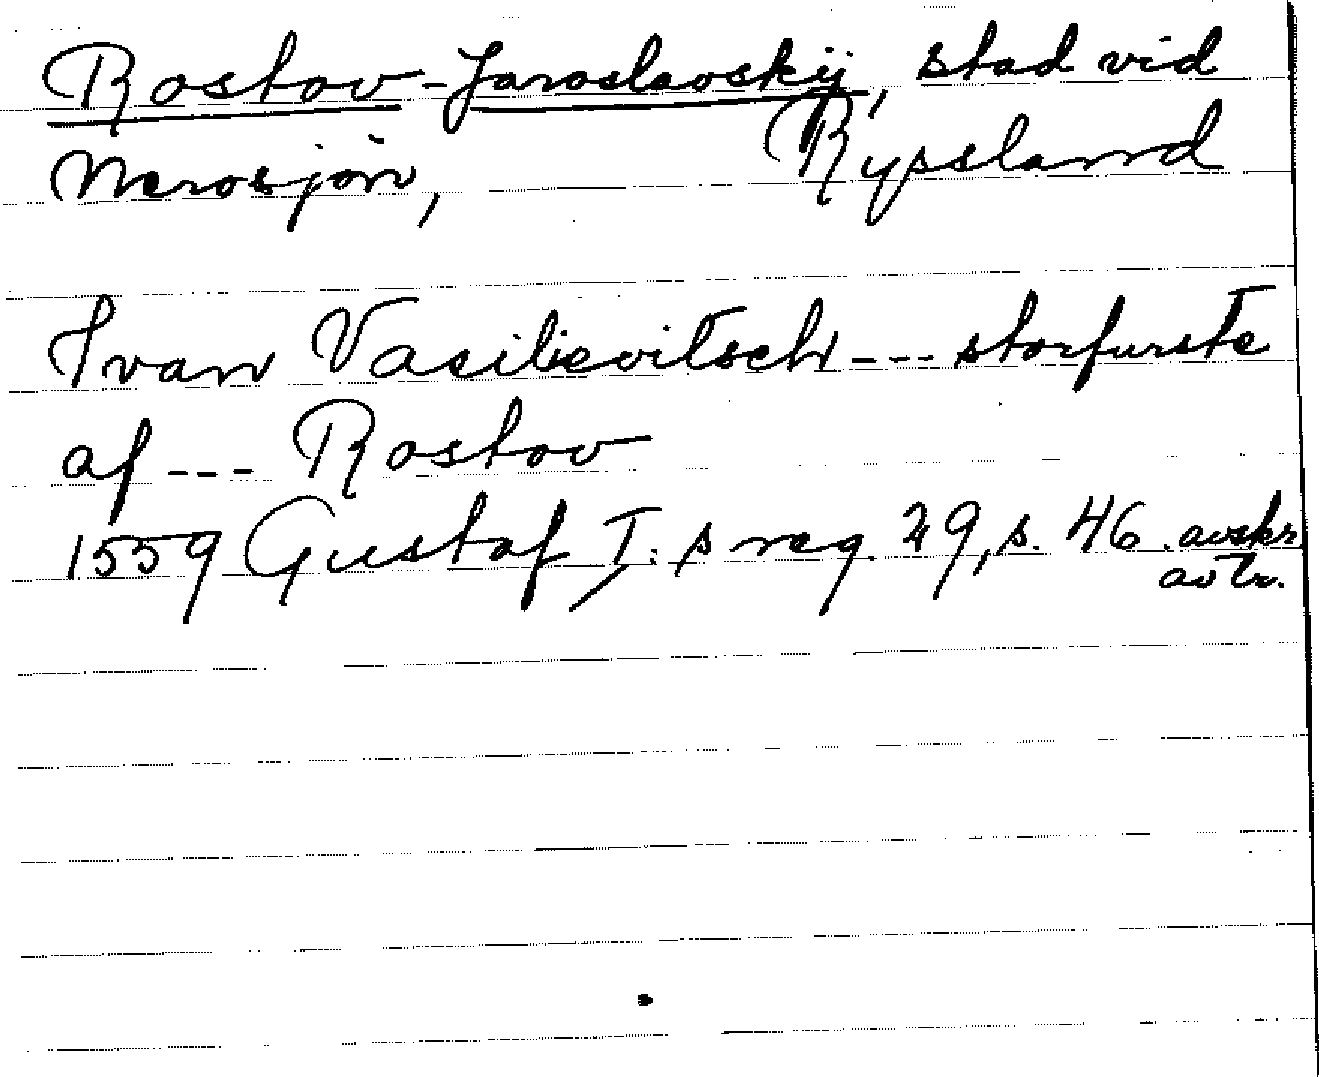 Rostov-Jaroslavskij, stad vid
Nerosjön, Ryssland
Ivan Vasilievitsch --- storfurste
af --- Rostov
1559 Gustaf I:s reg. 29, s. 46 avskr.
avtr.